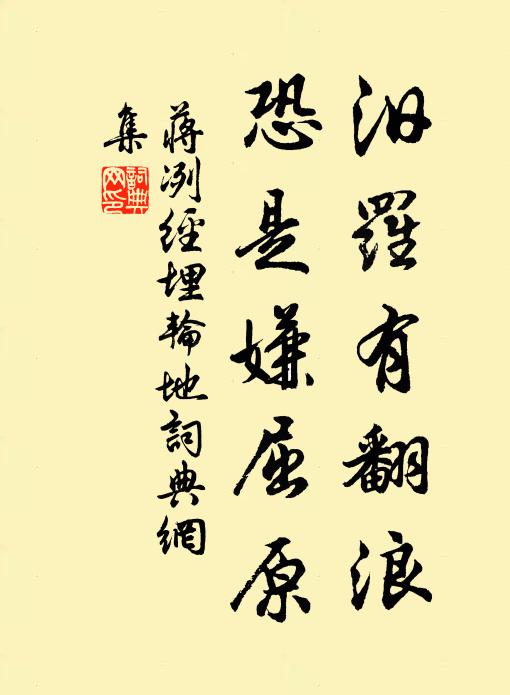 汨羅有翻浪
恐是嫌屈原
蔣冽經埋輪地詞典網
集
詞典
网印